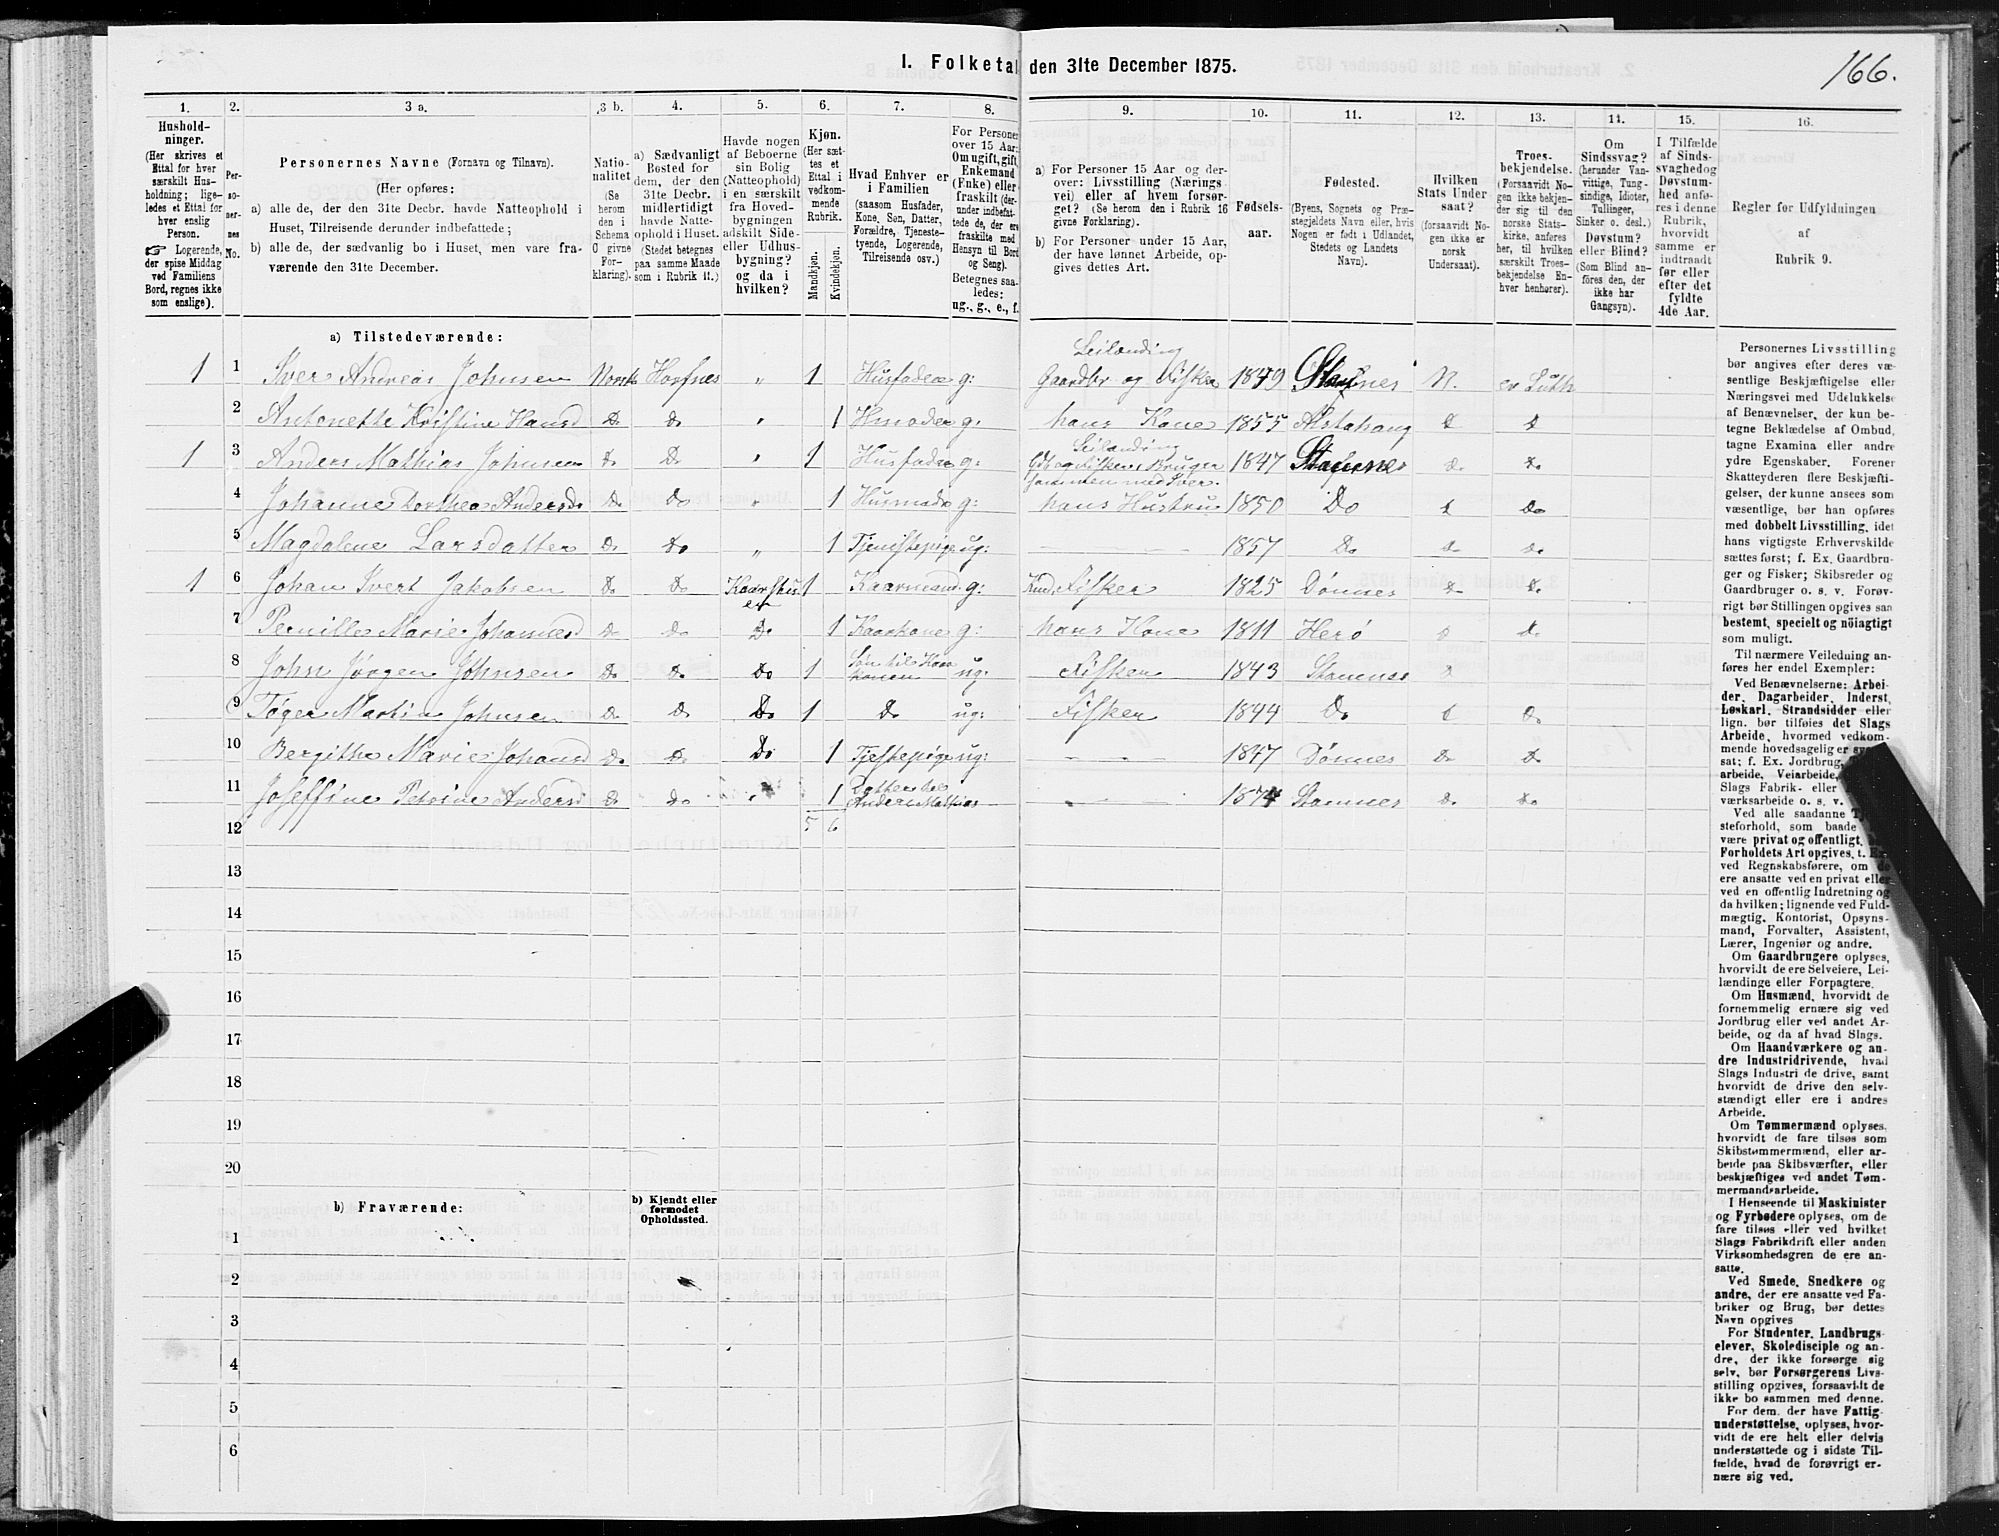 I. Folketal den 31te December 1875.
166.
1.
2.
3 a.
3 b.
4.
5.
6.
7.
8.
9.
10.
11.
12.
13.
14.
15.
16.
Hushold-
ninger.
(Her skrives et
Ettal for hver
særskilt Hus-
holdning; lige-
ledes et Ettal for
hver enslig
Person.
☞ Logerende,
der spise Middag
ved Familiens
Bord, regnes ikke
som enslige).
Per-
so-
ner-
nes
No.
Personernes Navne (Fornavn og Tilnavn).
(Her opføres:
a) alle de, der den 31te Decbr. havde Natteophold i
Huset, Tilreisende derunder indbefattede;
b) alle de, der sædvanlig bo i Huset, men vare fra-
værende den 31te December.
Natio-
nalitet
(Se
herom
den i
Schema
O givne
For-
klaring).
a) Sædvanligt
Bosted for
dem, der den
31te Decbr.
midlertidigt
havde Natte-
ophold i Huset.
(Stedet betegnes
paa samme Maade
som i Rubrik 11.)
Havde nogen
af Beboerne
sin Bolig
(Natteophold)
i en særskilt
fra Hoved-
bygningen
adskilt Side-
eller Udhus-
bygning?
og da i
hvilken?
Kjøn.
(Her sæt-
tes et
Ettal i
vedkom-
mende
Rubrik.
Mandkjøn.
Kvindekjøn.
Hvad Enhver er
i Familien
(saasom Husfader,
Kone, Søn, Datter,
Forældre, Tjeneste-
tyende, Logerende,
Tilreisende osv.)
For Personer
over 15 Aar:
Om ugift, gift,
Enkemand
(Enke) eller
fraskilt (der-
under indbefat-
tede de, der ere
fraskilte med
Hensyn til Bord
og Seng).
Betegnes saa-
ledes:
ug., g., e., f.
a) For Personer 15 Aar og der-
over: Livsstilling (Nærings-
vei) eller af hvem forsør-
get? (Se herom den i Rubrik 16
givne Forklaring).
b) For Personer under 15 Aar,
der have lønnet Arbeide, op-
gives dettes Art.
Fødsels-
aar.
Fødested.
(Byens, Sognets og Præ-
stegjeldets Navn eller, hvis
Nogen er født i Udlandet,
Stedets og Landets
Navn).
Hvilken
Stats Under
saat?
(forsaavidt No-
gen ikke er
norsk
Undersaat).
Troes-
bekjendelse.
(Forsaavidt No-
gen ikke bekjen-
der sig til den
norske Stats-
kirke, anføres
her, til hvilken
særskilt Troes-
bekjendelse En-
hver henhører).
Om
Sindssvag?
(herunder Van-
vittige, Tung-
sindige, Idioter,
Tullinger,
Sinker o. desl.)
Døvstum?
eller Blind?
(Som Blind an-
føres den, der
ikke har
Gangsyn).
I Tilfælde
af Sinds-
svaghed og
Døvstum-
hed anfø-
res i denne
Rubrik,
hvorvidt
samme er
indtraadt
før eller
efter det
fyldte
4de Aar.
Regler for Udfyldningen
af
Rubrik 9.
a) Tilstedeværende:
1 1 Iver Andreas Johnsen Norsk Hovfnes " 1 Husfader g: Leilænding Gaardbr og Fisker 1849 Stamnes N. ev Luth
2 Antonette Kristine Hansd D. Do " 1 Hmoder g: hans Kone 1855 Alstahaug D D
1 3 Anders Mathias Johnsen D. Do " 1 Husfader g: Leilænding Gdb og Fisker Bruger sammen med Iver. 1847 Stamnes D. D.
4 Johanne Dorthea Andersd. D. Do " 1 Husmodr g: hans Hustru 1850 Do D Do
5 Magdalene Larsdatter D. Do " 1 Tjenistepige ug: 1857 Do D. D.
1 6 Johan Ivert Jakobsen D. Do Kaarstuen 1 Kaarmand g: Fisker 1825 Dønnes D. D.
7 Pernille Marie Johannesd D. Do Do 1 Kaarkone g: hans Kone 1811 Herø D D.
8 John Jørgen Johnsen D. D. Do 1 Søn til Kaarkonen ug: Fisker 1843 Stamnes D
9 Tøger Martin Johnsen D. D. Do 1 D. ug: Fisker 1844 Do D D.
10 Bergithe Marie Johansd D. D. Do 1 Tjestepige ug: 1847 Dønnes D. D.
11 Joseffine Petrine Andersd D. Do " 1 Datter til Anders Mathias 1874 Stamnes D. D.
12 5 6
13
14
15
16
17
18
19
20
b) Fraværende:
b) Kjendt eller
formodet
Opholdssted.
1
2
3
4
5
6
Personernes Livsstilling
bør angives efter deres væ-
sentlige Beskjæftigelse eller
Næringsvei med Udelukkelse
af Benævnelser, der kun be-
tegne Beklædelse af Ombud,
tagne Examina eller andre
ydre Egenskaber. Forener
Skatteyderen flere Beskjæfti-
gelser, der kunne ansees som
væsentlige, bør han opføres
med dobbelt Livsstilling, idet
hans vigtigste Erhvervskilde
sættes først; f. Ex. Gaardbru-
ger og Fisker; Skibsreder og
Gaardbruger o. s. v. Forøv-
rigt bør Stillingen opgives saa
bestemt, specielt og nöiagtigt
som muligt.
Til nærmere Veiledning an-
føres her endel Exempler:
Ved Benævnelserne: Arbei-
der, Dagarbeider, Inderst,
Løskarl, Strandsidder eller
lign. bør tilføies det Slags
Arbeide, hvormed vedkom-
mende hovedsagelig er
sat; f. Ex. Jordbrug,
arbeide, Veiarbeide,
Slags Fabrik- eller
værksarbeide o. s. v.
Ved alle saadanne
steforhold, som baade
være privat og offentligt,
Forholdets Art opgives, t.
ved Regnskabsførere, om de
ere ansatte ved en privat eller
ved en offentlig Indretning og
da hvilken; lignende ved Fuld-
mægtig, Kontorist, Opsyns-
mand, Forvalter, Assistent,
Lærer, Ingeniør og andre.
Om Gaardbrugere oplyses,
hvorvidt de ere Selveiere, Lei-
lændinge eller Forpagtere.
Om Husmænd, hvorvidt de
fornemmelig ernære sig ved
Jordbrug eller ved andet Ar-
beide, og da af hvad Slags.
Om Haandværkere og an-
dre Industridrivende, hvad
Slags Industri de drive, samt
hvorvidt de drive den selv-
stændigt eller ere i andres
Arbeide.
Om Tømmermænd oplyses,
hvorvidt de fare tilsøs som
Skibstømmermænd, eller ar-
beide paa Skibsværfter, eller
beskjæftiges ved andet Tøm-
mermandsarbeide.
I Henseende til Maskinister
og Fyrbødere oplyses, om de
fare tilsøs eller ved hvilket
Slags Fabrikdrift eller anden
Virksomhedsgren de ere an-
satte.
Ved Smede, Snedkere og
andre, der ere ansatte ved Fa-
briker og Brug, bør dettes
Navn opgives
For Studenter, Landbrugs-
elever, Skoledisciple og an-
dre, der ikke forsørge sig
selv, bør Forsørgerens Livs-
stilling opgives, forsaavidt de
ikke bo sammen med denne.
For dem, der have Fattig-
understøttelse, oplyses, hvor-
vidt de ere helt eller delvis
understøttede og i sidste Til-
fælde, hvad de forøvrigt er-
nære sig ved.